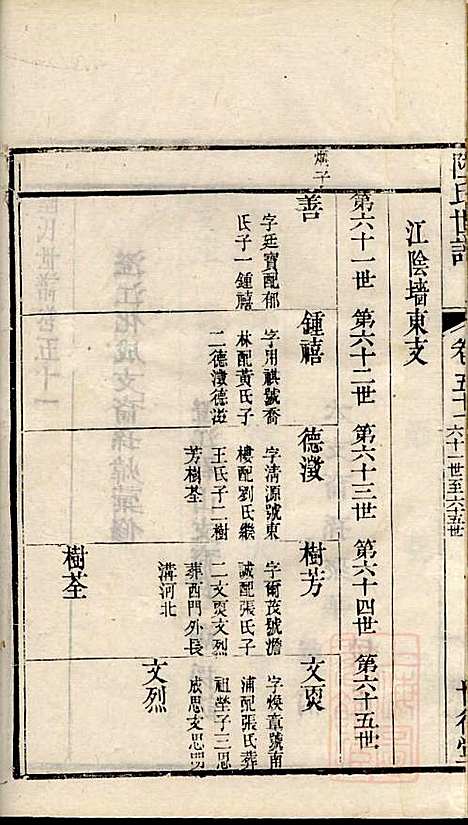 陸氏世譜
卷五十一 六十一世至六十五世
江陰墻東支
第六十一世
第六十二世
第六十三世
第六十四世
第六十五世
善
字廷寶配郁
氏子一鍾禧
鍾禧
字用祺號喬
林配黃氏子
二德澂德滋
德澂
字清源號東
樓配劉氏繼
王氏子二樹
芳樹荃
樹芳
字爾茂號澹
誠配張氏子
二文㷇文烈
葬西門外長
溝河北
文㷇
字煥章號南
浦配張氏葬
祖塋子三思
成思文思
樹荃
文烈